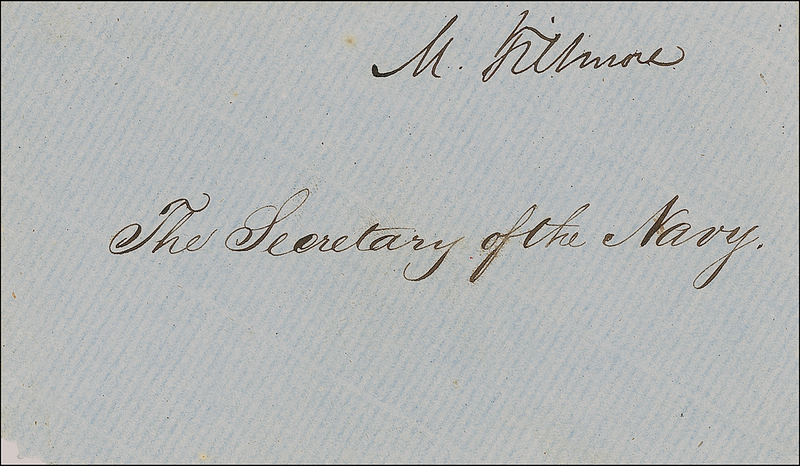 M. Fillmore
The Secretary of the Navy.